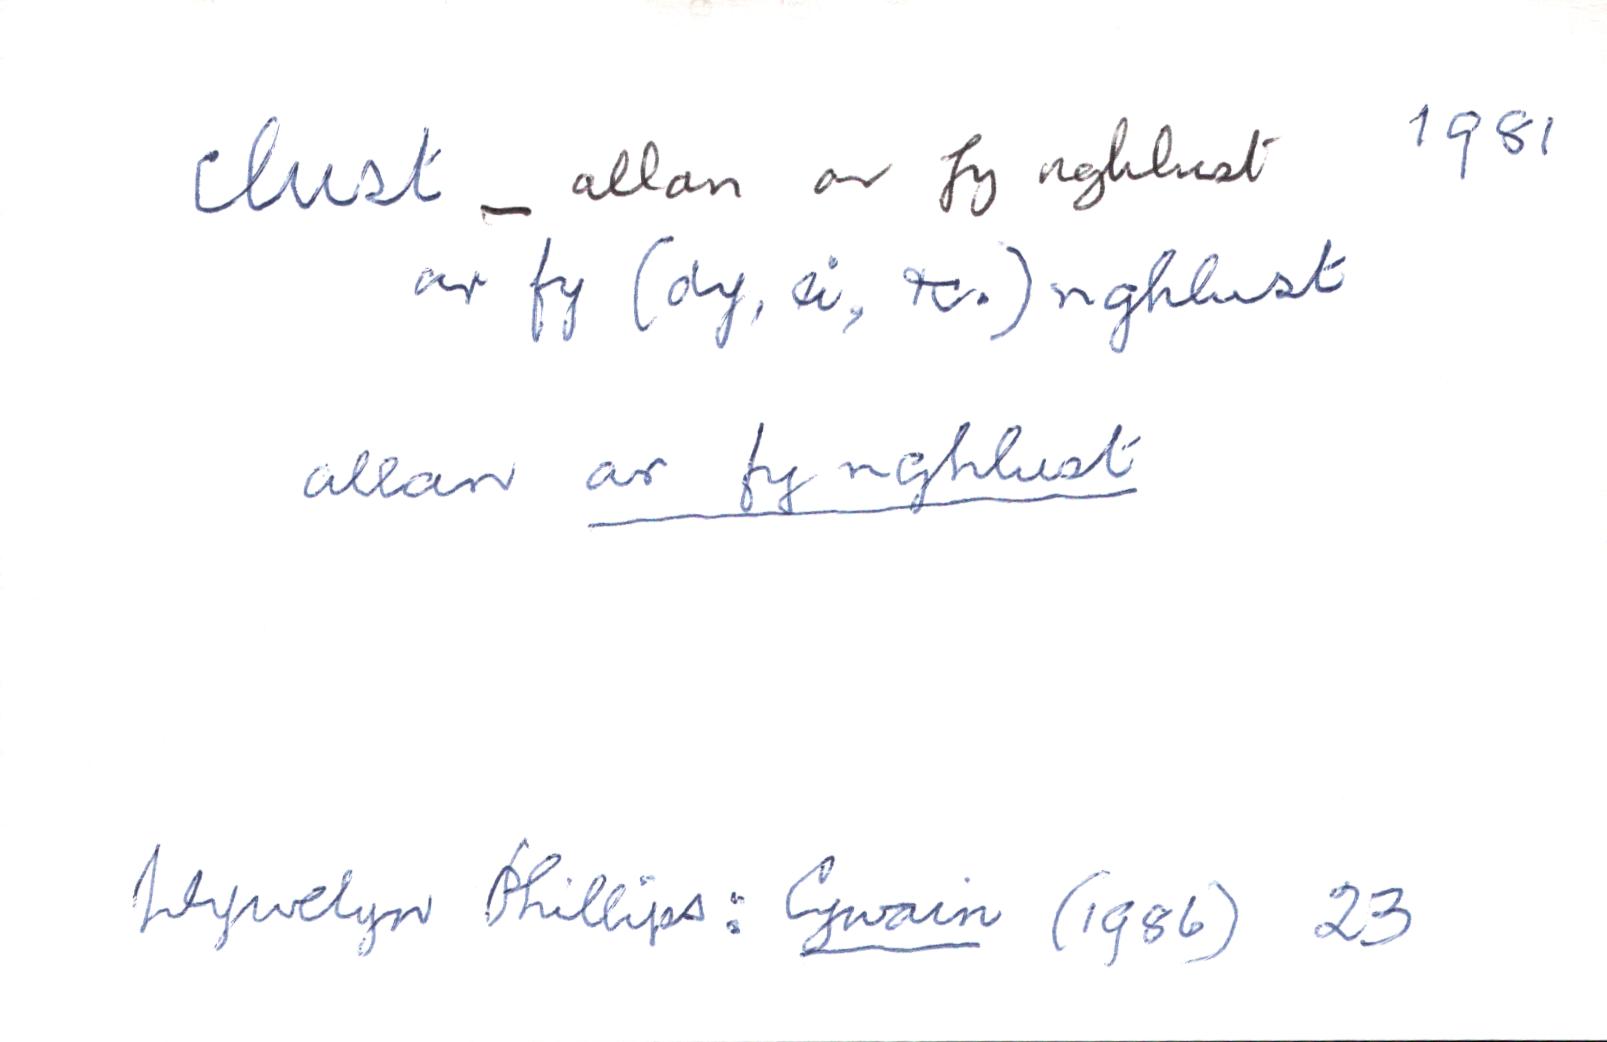 clust – allan ar fy nghlust 1981
ar fy (dy, ei, &c.) nghlust
allan ar fy nghlust
Llywelyn Phillips: Cywain (1986) 23